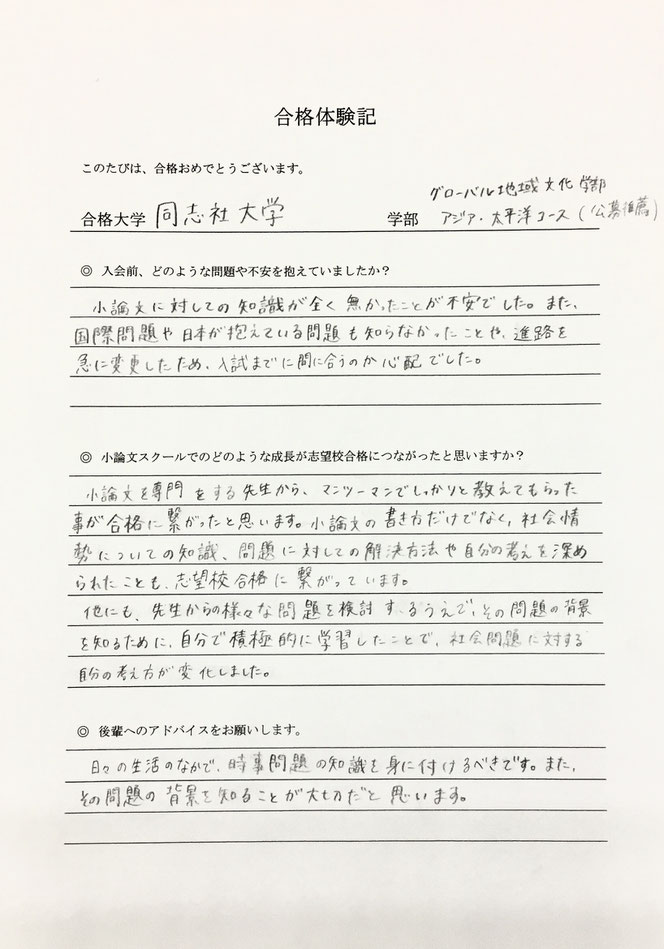 合格体験記
このたびは、合格おめでとうございます。
グローバル地域文化学部
合格大学 同志社大学 学部 アジア・太平洋コース(公募推薦)
◎ 入会前、どのような問題や不安を抱えていましたか?
小論文に対しての知識が全く無かったことが不安でした。また、
国際問題や日本が抱えている問題も知らなかったことや、進路を
急に変更したため、入試までに間に合うのか心配でした。
◎ 小論文スクールでのどのような成長が志望校合格につながったと思いますか?
小論文を専門をする先生から、マンツーマンでしっかりと教えてもらった
事が合格に繋がったと思います。小論文の書き方だけでなく、社会情
勢についての知識、問題に対しての解決方法や自分の考えを深め
られたことも、志望校合格に繋がっています。
他にも、先生からの様々な問題を検討するうえで、その問題の背景
を知るために、自分で積極的に学習したことで、社会問題に対する
自分の考え方が変化しました。
◎ 後輩へのアドバイスをお願いします。
日々の生活のなかで、時事問題の知識を身に付けるべきです。また、
その問題の背景を知ることが大切だと思います。